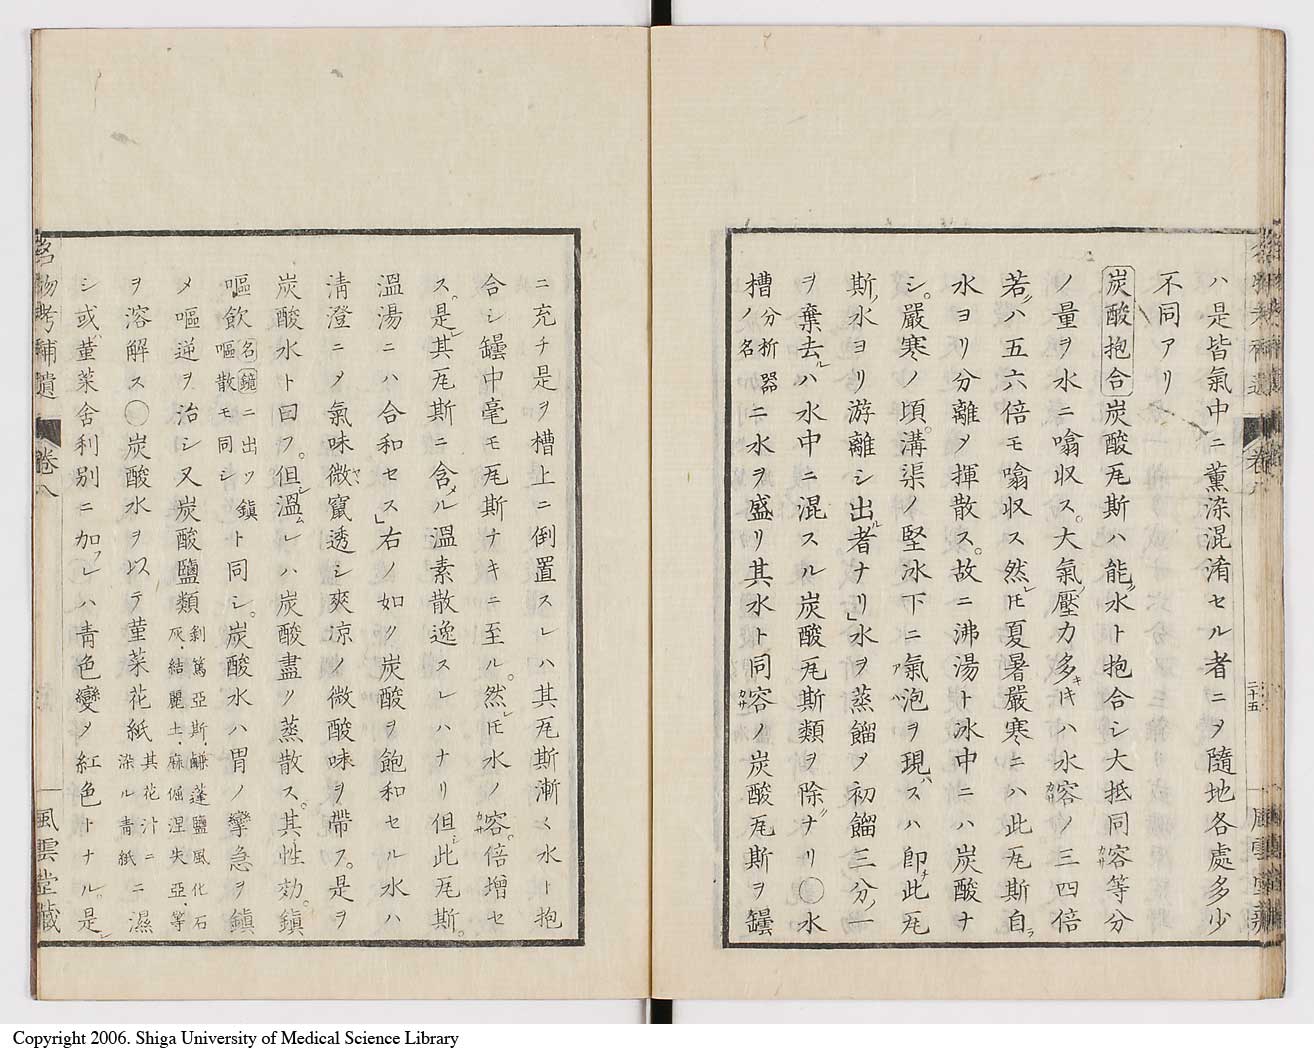 ハ是皆氣中ニ薫染混淆セル者ニヲ隨地各處多少
不同アリ
炭酸抱合 炭酸瓦斯ハ能ク水ト抱合シ大抵同容カサ等分
ノ量ヲ水ニ噏収ス。大氣壓力多キ𪜈ハ水容カサノ三四倍
若クハ五六倍モ噏収ス然レ𪜈夏暑嚴寒ニハ此瓦斯自ラ
水ヨリ分離メ揮散ス。故ニ沸湯ト冰中ニハ炭酸ナ
シ。嚴寒ノ頃。溝渠ノ堅冰下ニ氣泡アハヲ現ハスハ即チ此瓦
斯ノ水ヨリ游離シ出ル者ナリ」水ヲ蒸餾メ初餾三分ノ一
ヲ棄去ルハ水中ニ混スル炭酸瓦斯類ヲ除クナリ◯水
槽分析器ノ名ニ水ヲ盛リ其水ト同容カサノ炭酸瓦斯ヲ罎
二十五
ニ充チ是ヲ槽上ニ倒置スレハ其瓦斯漸ク水ト抱
合シ罎中毫モ瓦斯ナキニ至ル。然レ𪜈水ノ容カサ。倍増セ
ス。是レ其瓦斯ニ含メル溫素散逸スレハナリ但シ此瓦斯。
溫湯ニハ合和セス」右ノ如ク炭酸ヲ飽和セル水ハ
清澄ニメ氣味微ヤヤ竄透シ爽涼ノ微酸味ヲ帶フ。是ヲ
炭酸水ト曰フ。但シ溫ムレハ炭酸盡ク蒸散ス。其性効。鎭
嘔飲名鏡ニ出ツ鎭嘔散モ同シト同シ。炭酸水ハ胃ノ攣急ヲ鎭
メ嘔逆ヲ治シ又炭酸鹽類剝篤亞斯、鹻蓬鹽風化石灰、結麗土、麻倔涅失亞、等
ヲ溶解ス◯炭酸水ヲ以ステ菫菜花紙其花汁ニ染ル青紙ニ濕
シ或ハ菫菜舍利別ニ加フレハ青色變メ紅色トナル。是レ
名物考補遺 卷八 風雲堂藏
Copyright 2006. Shiga University of Medical Science Library